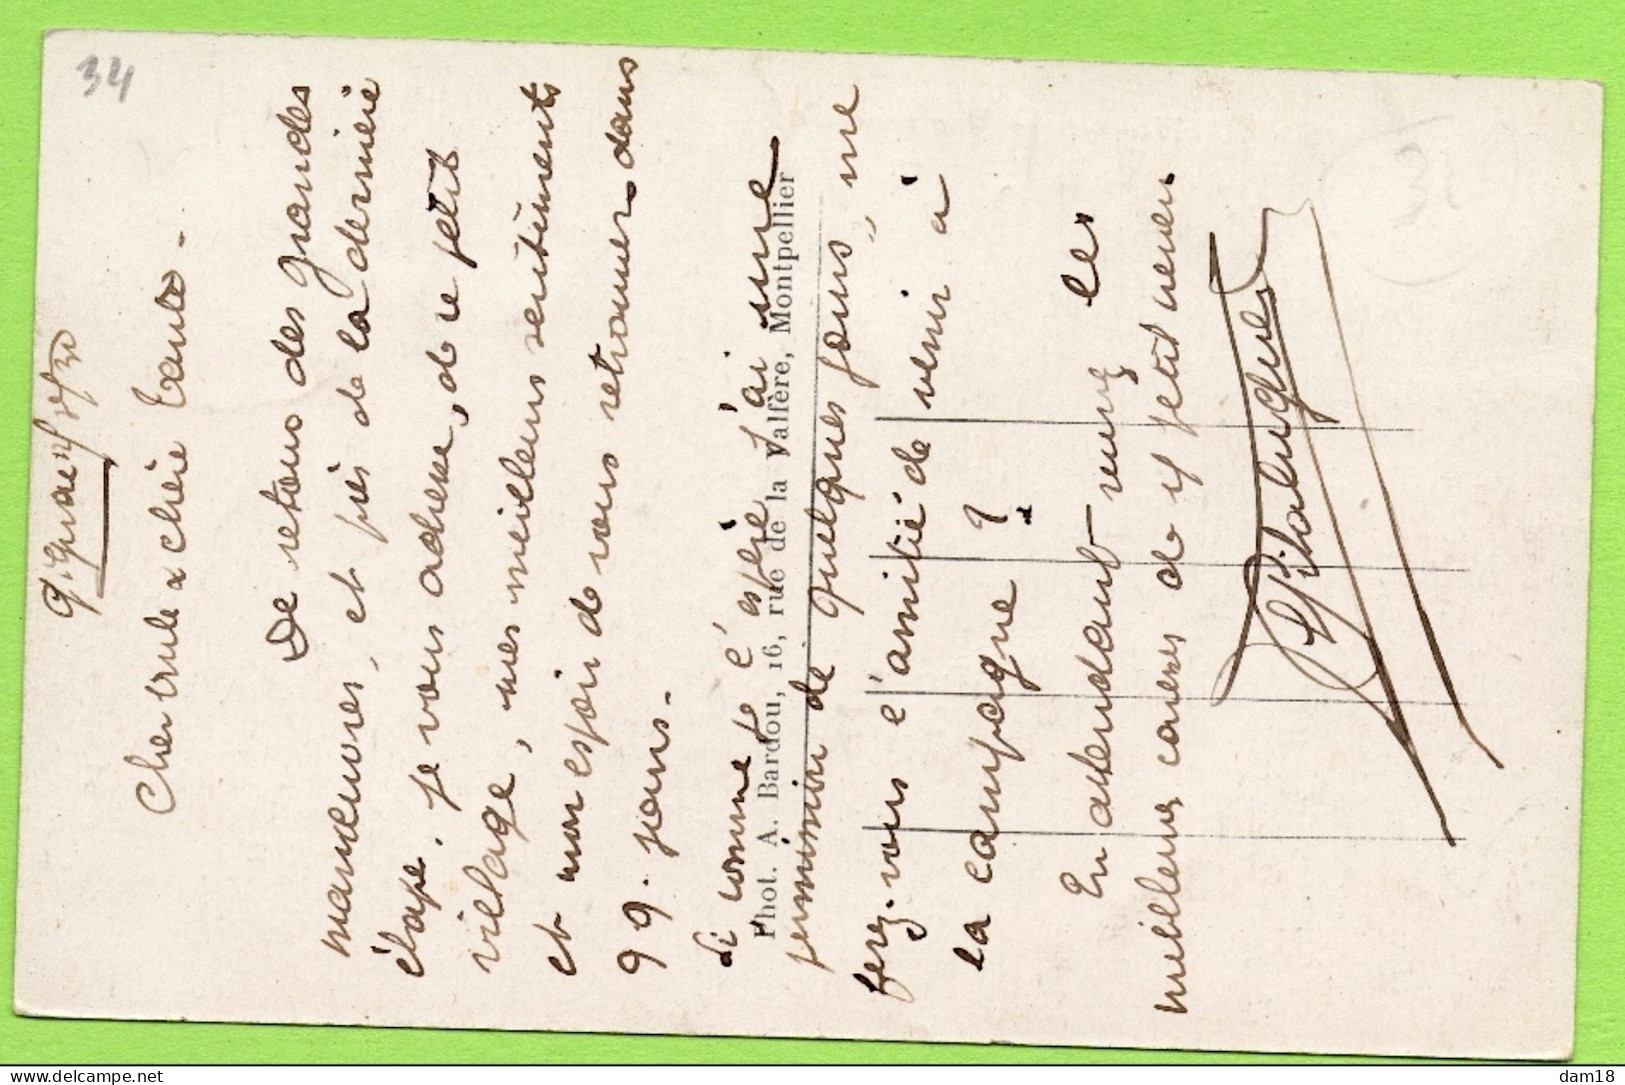 34
Cher oncle & chère Tante -
De retour des grandes
manœuvres, et près de la dernière
étape. je vous adresse, de ce petit
village, mes meilleurs sentiments
et mon espoir de vous retrouver dans
99. jours -
Si comme je l'espère j'ai une
permission de quelques jours, me
ferez-vous l'amitié de venir à
la campagne ?
En attendant les
meilleures caresses de
Phot. A. Bardou, 16, rue de la Valfère, Montpellier
delcampe.net
dam18